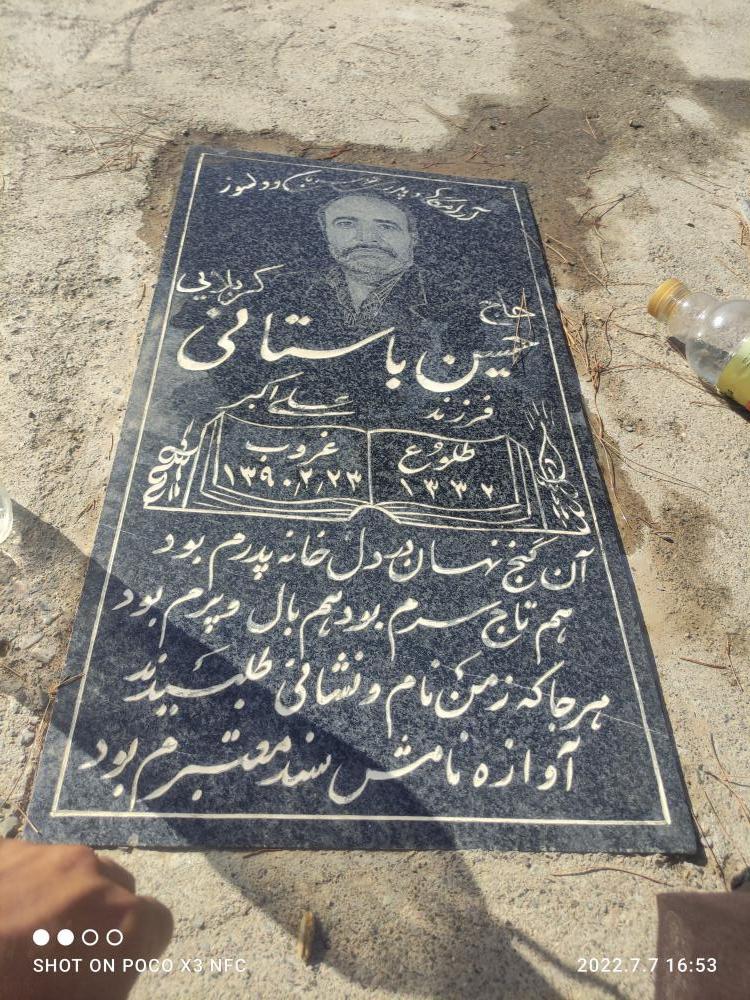 آرامگاه پدر مهربان و دلسوز
حاج
کربلایی
حسین باستانی
فرزند علی اکبر
طلوع
۱۳۳۲
غروب
۱۳۹۰/۲/۲۳
آن گنج نهان در دل خانه پدرم بود
هم تاج سرم بود هم بال و پرم بود
هر جا که ز من نام و نشانی طلبیدند
آوازه نامش سند معتبرم بود
SHOT ON POCO X3 NFC
2022.7.7 16:53